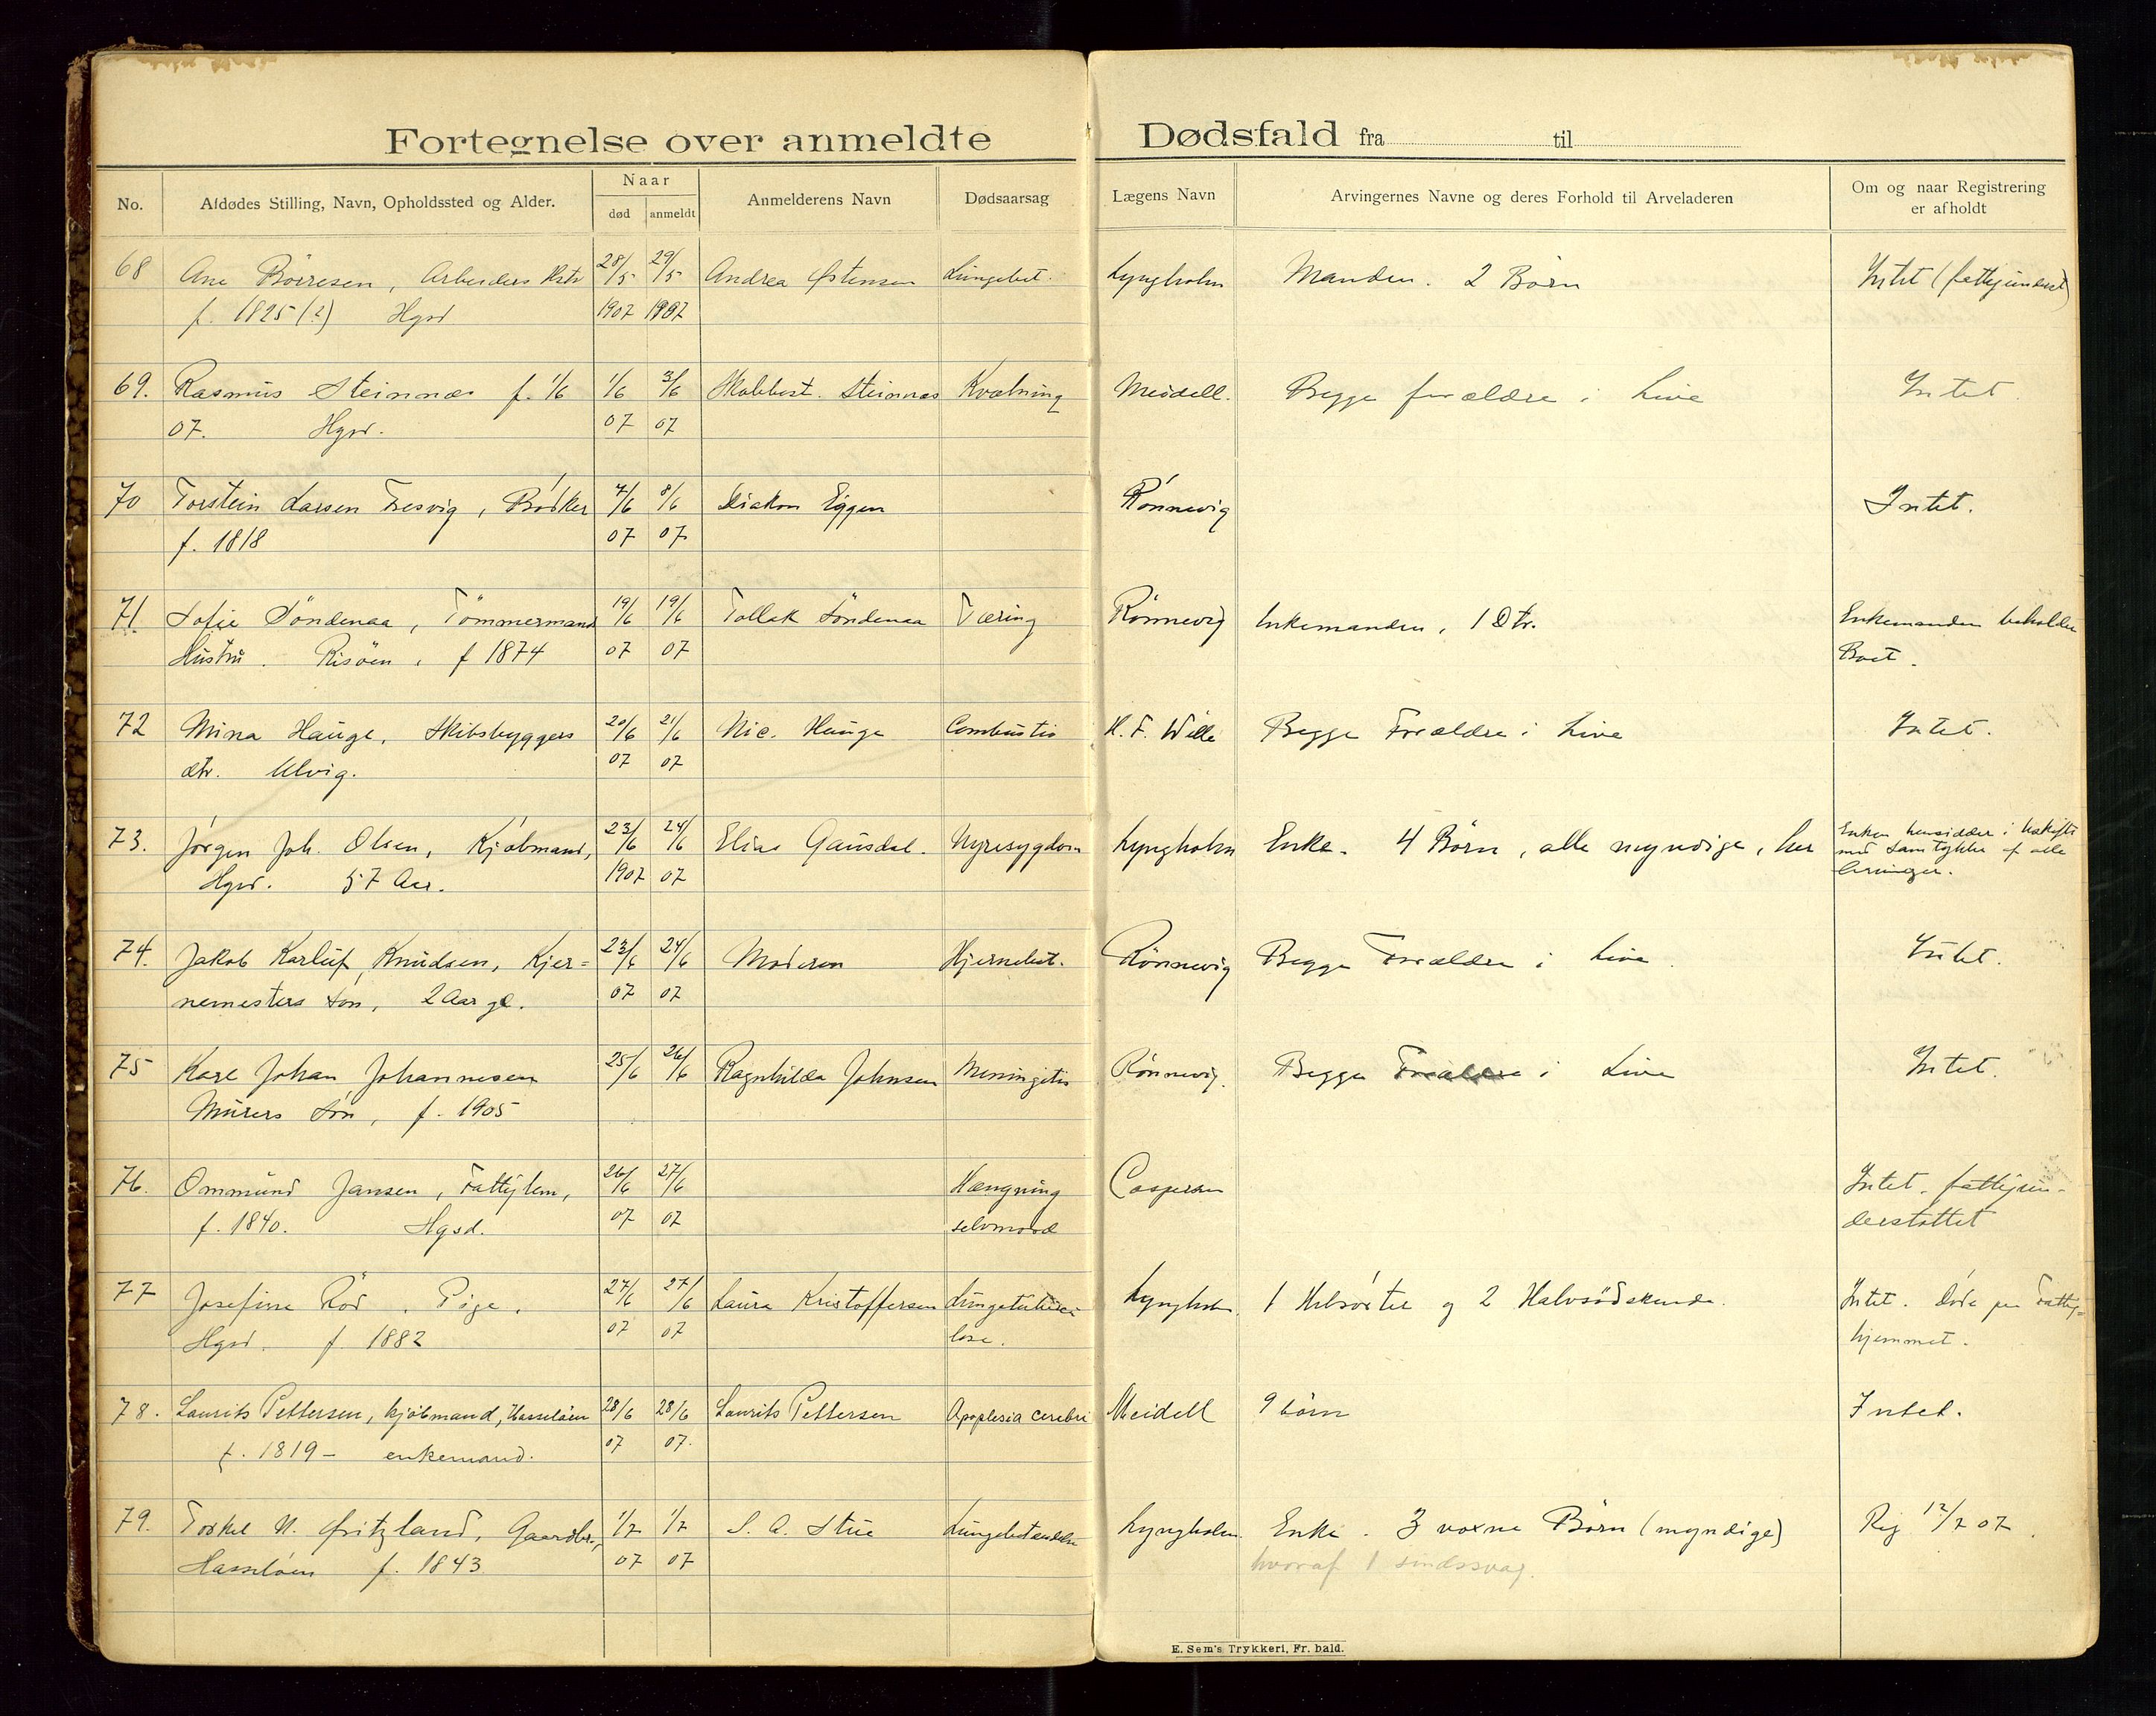 Fortegnelse over anmeldte Dødsfald fra til
No. Afdødes Stilling, Navn, Opholdssted og Alder. Naar død anmeldt Anmelderens Navn Dødsaarsag Lægens Navn Arvingernes Navne og deres Forhold til Arveladeren Om og naar Registrering er afholdt
68 Ane Börresen, Arbeiders Hstr 28/5 29/5 Andrea Østensen Lungebet. Lyngholm Manden. 2 Börn Intet (fattigunderst)
f. 1825 (?) Hgsd 1907 1907
69. Rasmus Steinnæs f. 1/6 1/6 3/6 Steinnæs Kvælning Meidell. Begge forældre i Live Intet.
07. Hgsd. 07 07
70 Torstein Larsen Tresvig, Bödker 7/6 8/6 Diakon Eggen Rönnevig Intet.
f. 1818 07 07
71. Sofie Söndenaa, Tömmermand 19/6 19/6 Tollak Söndenaa Tæring Rönnevig Enkemanden, 1 Dtr. Enkemanden beholder
Hustru. Risöen, f 1874 07 07 Boet.
72 Mina Hauge, Skibsbyggers 20/6 21/6 Nic. Hauge Combustio H. F. Wille Begge Forældre i Live Intet.
dtr. Ulvig. 07 07
73. Jörgen Joh. Olsen, Kjöbmand, 23/6 24/6 Elias Gausdal. Nyresygdom Lyngholm Enke. 4 Börn, alle myndige, her Enken hensidder i uskifte
med Samtykke af alle
Hgsd. 57 Aar. 1907 07 Arvinger.
74. Jakob Karluf Knudsen, Kjer= 23/6 24/6 Moderen Hjernebet. Rönnevig Begge Forældre i Live. Intet.
nemesters Sön, 2 Aar gl. 07 07
75 Karl Johan Johannesen 25/6 26/6 Ragnhilda Johnsen Meningitis Rönnevig. Begge Forældre i Live Intet.
Murers Sön, f. 1905
76. Ommund Jansen, Fattiglem, 26/6 27/6 Hængning Caspersen Intet. fattigun-
f. 1840. Hgsd. 07 07 selvmord derstöttet
77 Josefine Röd. Pige. 27/6 27/6 Laura Kristoffersen Lungetuberku Lyngholm. 1 Helsöster og 2 Halvsödskende. Intet. död paa Fattig=
Hgsd. f. 1882 07 07 lose. hjemmet.
78. Laurits Pettersen, kjöbmand, Hasselöen 28/6 28/6 Laurits Pettersen Apoplexia cerebri Meidell 9 börn Intet.
f. 1819 - enkemand. 07 07.
79. Torkel N. Gritzland, Gaardbr., 1/7 1/7 S. A. Stue Lungebetændelse Lyngholm. Enke. 3 voxne Börn (myndige) Reg 12/7 07.
Hasselöen f. 1843 07 07 hvoraf 1 sindssvag.
E. Sem's Trykkeri, Fr. hald.